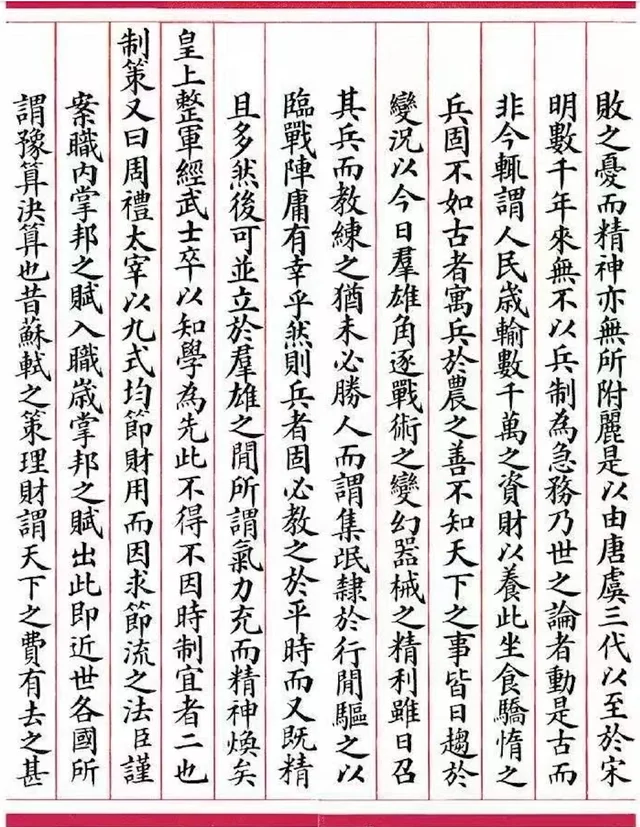 敗之憂而精神亦無所附麗是以由唐虞三代以至於宋
明數千年來無不以兵制為急務乃世之論者動是古而
非今輒謂人民歲輸數千萬之資財以養此坐食驕惰之
兵固不如古者寓兵於農之善不知天下之事皆日趨於
變況以今日羣雄角逐戰術之變幻器械之精利雖日召
其兵而教練之猶未必勝人而謂集氓隸於行間驅之以
臨戰陣庸有幸乎然則兵者固必教之於平時而又既精
且多然後可並立於羣雄之間所謂氣力充而精神煥矣
皇上整軍經武士卒以知學為先此不得不因時制宜者二也
制策又曰周禮太宰以九式均節財用而因求節流之法臣謹
案職內掌邦之賦入職歲掌邦之賦出此即近世各國所
謂豫算決算也昔蘇軾之策理財謂天下之費有去之甚